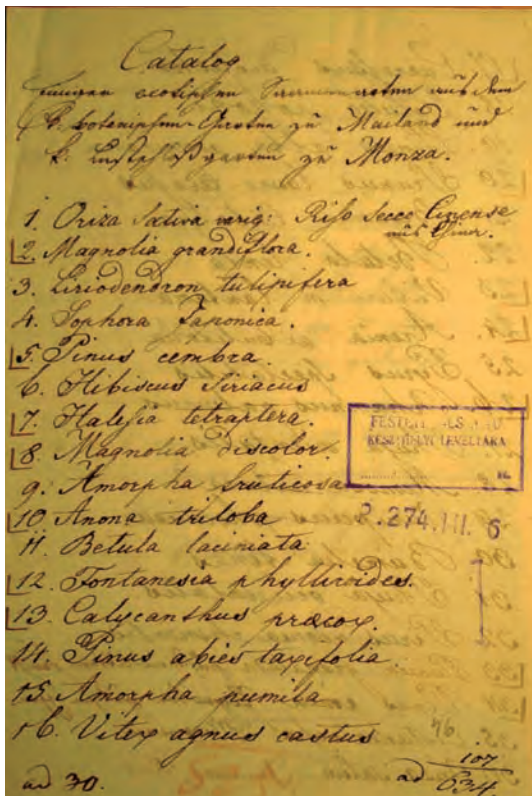 Catalog
einiger exotischen Saamenarten aus dem
k: botanischen Garten zu Mailand und
k: Lustschloßgarten zu Monza.
1. Oriza Sativa varig: Riso Secco Cinense
aus China.
2. Magnolia grandiflora.
3. Liriodendron tulipifera
4. Sophora Japonica.
5. Pinus cembra.
6. Hibiscus Siriacus
7. Halesia tetraptera.
8. Magnolia discolor.
9. Amorpha fruticosa
10. Anona triloba
11. Betula laciniata
12. Fontanesia phylliroides.
13. Calycanthus præcox.
14. Pinus abies taxifolia.
15. Amorpha pumila
16. Vitex agnus castus
ad 30.
FESTETICS LEVÉLTÁR
KESZTHELYI LEVÉLTÁRA
P.274.III. 6
76
ad 107
634